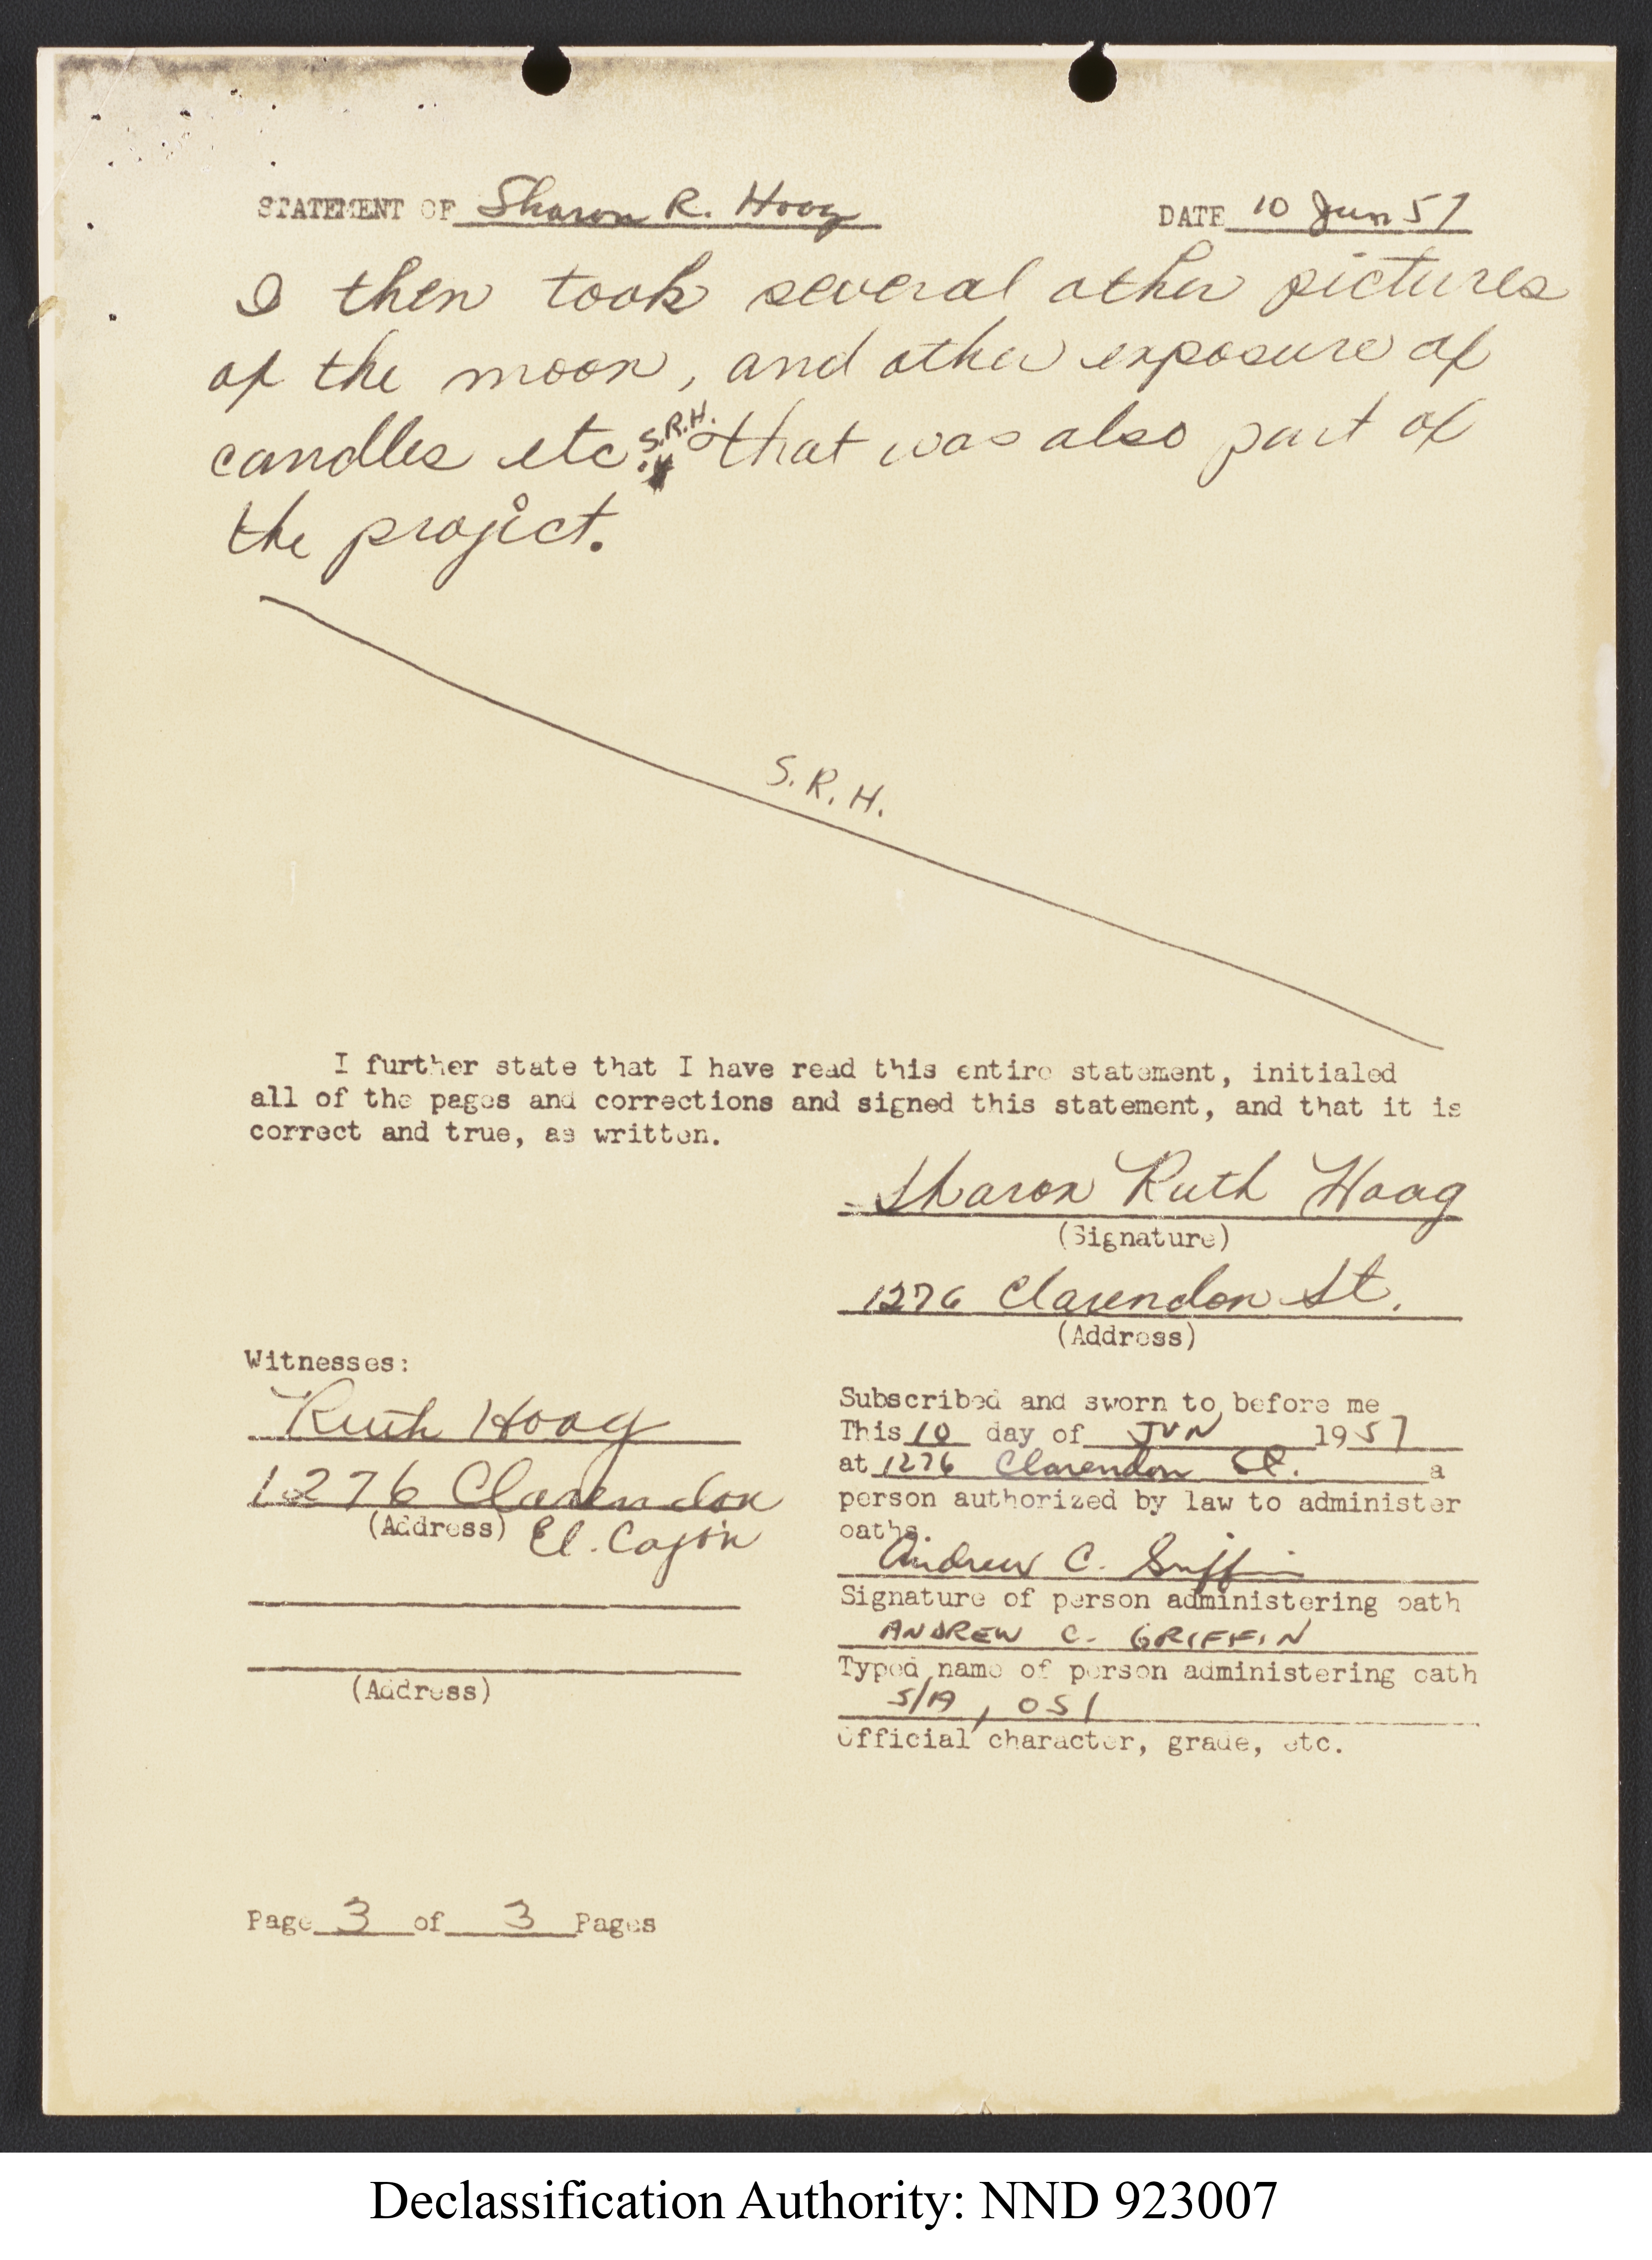 STATEMENT OF Sharon R. Hoag DATE 10 Jun 57
I then took several other pictures
of the moon, and other exposure of
candles etc. S.R.H. that was also part of
the project.
S.R.H.
I further state that I have read this entire statement, initialed
all of the pages and corrections and signed this statement, and that it is
correct and true, as written.
Sharon Ruth Hoag
(Signature)
1276 Clarendon St.
(Address)
Witnesses:
Ruth Hoag
1276 Clarendon
(Address) El. Cajon
(Address)
Subscribed and sworn to before me
This 10 day of JUN 1957
at 1276 Clarendon St. a
person authorized by law to administer
oaths.
Andrew C. Griffin
Signature of person administering oath
ANDREW C. GRIFFIN
Typed name of person administering oath
S/A, OSI
Official character, grade, etc.
Page 3 of 3 Pages
Declassification Authority: NND 923007